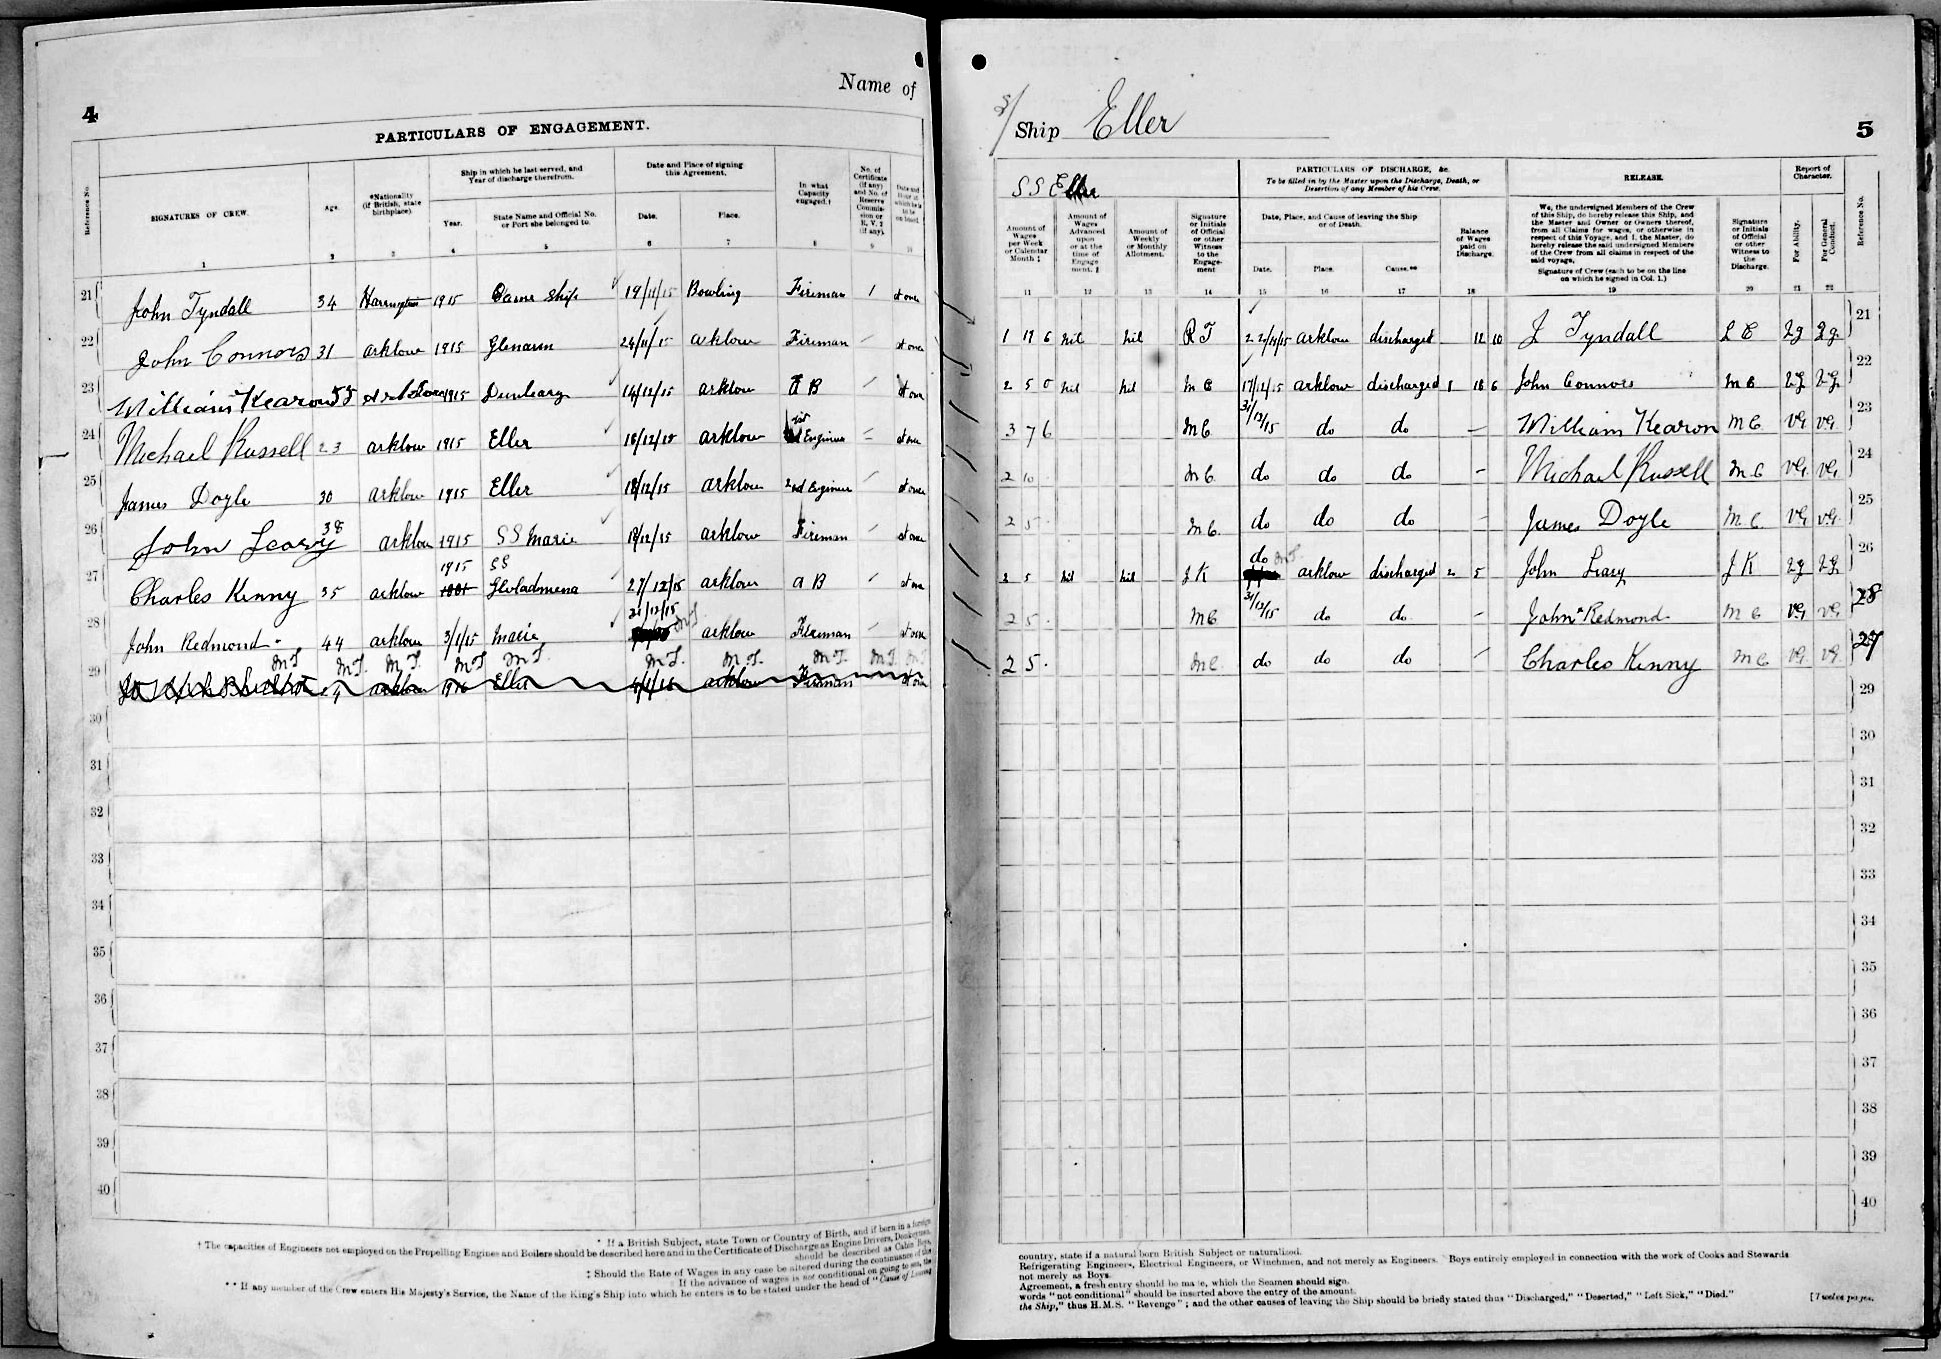 4
Name of
PARTICULARS OF ENGAGEMENT.
Reference No.
SIGNATURES OF CREW.
Age.
*Nationality (if British, state birthplace).
Ship in which he last served, and Year of discharge therefrom.
Year.
State Name and Official No. or Port she belonged to.
Date and Place of signing this Agreement.
Date.
Place.
In what Capacity engaged.†
No. of Certificate (if any) and No. of Reserve Commission or R.V. 2 (if any).
1 2 3 4 5 6 7 8 9 10
21 John Tyndall 34 Harrington 1915 Same ship 19/11/15 Bowling Fireman 1 at once
22 John Connors 31 arklow 1915 Glenarm 24/11/15 arklow Fireman at once
23 William Kearon 55 Arklow 1915 Dunleary 14/12/15 arklow A B at once
24 Michael Russell 23 arklow 1915 Eller 18/12/15 arklow 1st Engineer at once
25 James Doyle 30 arklow 1915 Eller 18/12/15 arklow 2nd Engineer at once
26 John Leary 38 arklow 1915 SS Marie 18/12/15 arklow Fireman at once
1915 SS
27 Charles Kenny 35 arklow 27/12/15 arklow a B at once
28 John Redmond 44 arklow 3/1/15 Marie 21/12/15 arklow Fireman at once
29 arklow 1916 Eller arklow Fireman at once
30
31
32
33
34
35
36
37
38
39
40
* If a British Subject, state Town or Country of Birth, and if born in a foreign
† The capacities of Engineers not employed on the Propelling Engines and Boilers should be described here and in the Certificate of Discharge as Engine Drivers, Donkeymen,
should be described as Cabin Boys,
‡ Should the Rate of Wages in any case be altered during the continuance of the
If the advance of wages is not conditional on going to sea, the
** If any member of the Crew enters His Majesty's Service, the Name of the King's Ship into which he enters is to be stated under the head of "Cause of Leaving
S/ Ship Eller
5
SS Eller
Amount of Wages per Week or Calendar Month ‡
Amount of Wages Advanced upon or at the time of Engagement. ‖
Amount of Weekly or Monthly Allotment.
Signature or Initials of Official or other Witness to the Engagement
PARTICULARS OF DISCHARGE, &c.
To be filled in by the Master upon the Discharge, Death, or Desertion of any Member of his Crew.
Date, Place, and Cause of leaving the Ship or of Death.
Date.
Place.
Cause.**
Balance of Wages paid on Discharge.
RELEASE.
We, the undersigned Members of the Crew of this Ship, do hereby release this Ship, and the Master and Owner or Owners thereof, from all Claims for wages, or otherwise in respect of this Voyage, and I, the Master, do hereby release the said undersigned Members of the Crew from all claims in respect of the said voyage.
Signature of Crew (each to be on the line on which he signed in Col. 1.)
Signature or Initials of Official or other Witness to the Discharge.
Report of Character.
For Ability.
For General Conduct.
Reference No.
11 12 13 14 15 16 17 18 19 20 21 22
1 17 6 nil nil R T 22/11/15 arklow discharged 12 10 J Tyndall L C V.g V.g 21
2 5 0 nil nil M C 17/12/15 arklow discharged 1 18 6 John Connors M C V.g V.g 22
3 7 6 M C 31/12/15 do do William Kearon M C VG VG 23
2 10 M C do do do Michael Russell M C VG VG 24
2 5 M C do do do James Doyle M C VG VG 25
2 5 nil nil J K do arklow discharged 2 5 John Leary J K V.g V.g 26
2 5 M C 31/12/15 do do John Redmond M C VG VG 28
2 5 M C do do do Charles Kenny M C VG VG 27
29
30
31
32
33
34
35
36
37
38
39
40
country, state if a natural born British Subject or naturalized.
Refrigerating Engineers, Electrical Engineers, or Winchmen, and not merely as Engineers. Boys entirely employed in connection with the work of Cooks and Stewards
not merely as Boys.
Agreement, a fresh entry should be made, which the Seamen should sign.
words "not conditional" should be inserted above the entry of the amount.
the Ship," thus H.M.S. "Revenge"; and the other causes of leaving the Ship should be briefly stated thus "Discharged," "Deserted," "Left Sick," "Died."
[Twelve pages.